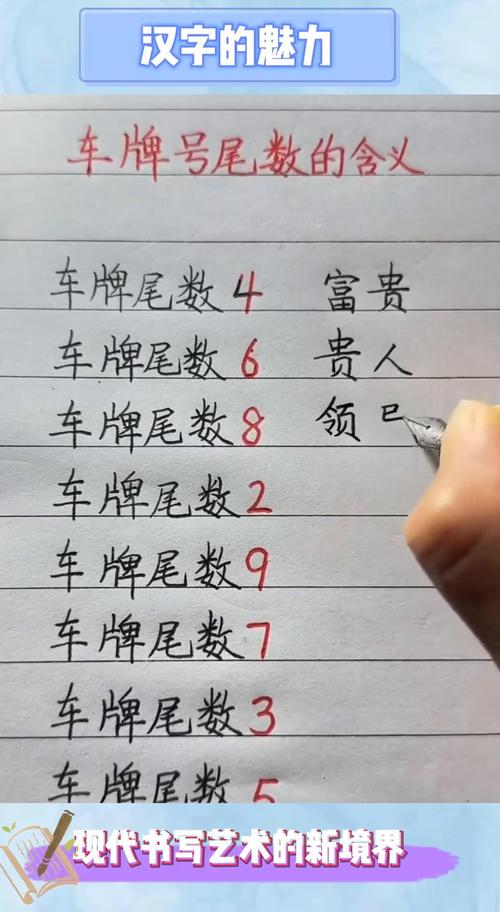 汉字的魅力
车牌号尾数的含义
车牌尾数4 富贵
车牌尾数6 贵人
车牌尾数8 领
车牌尾数2
车牌尾数9
车牌尾数7
车牌尾数3
车牌尾数5
现代书写艺术的新境界